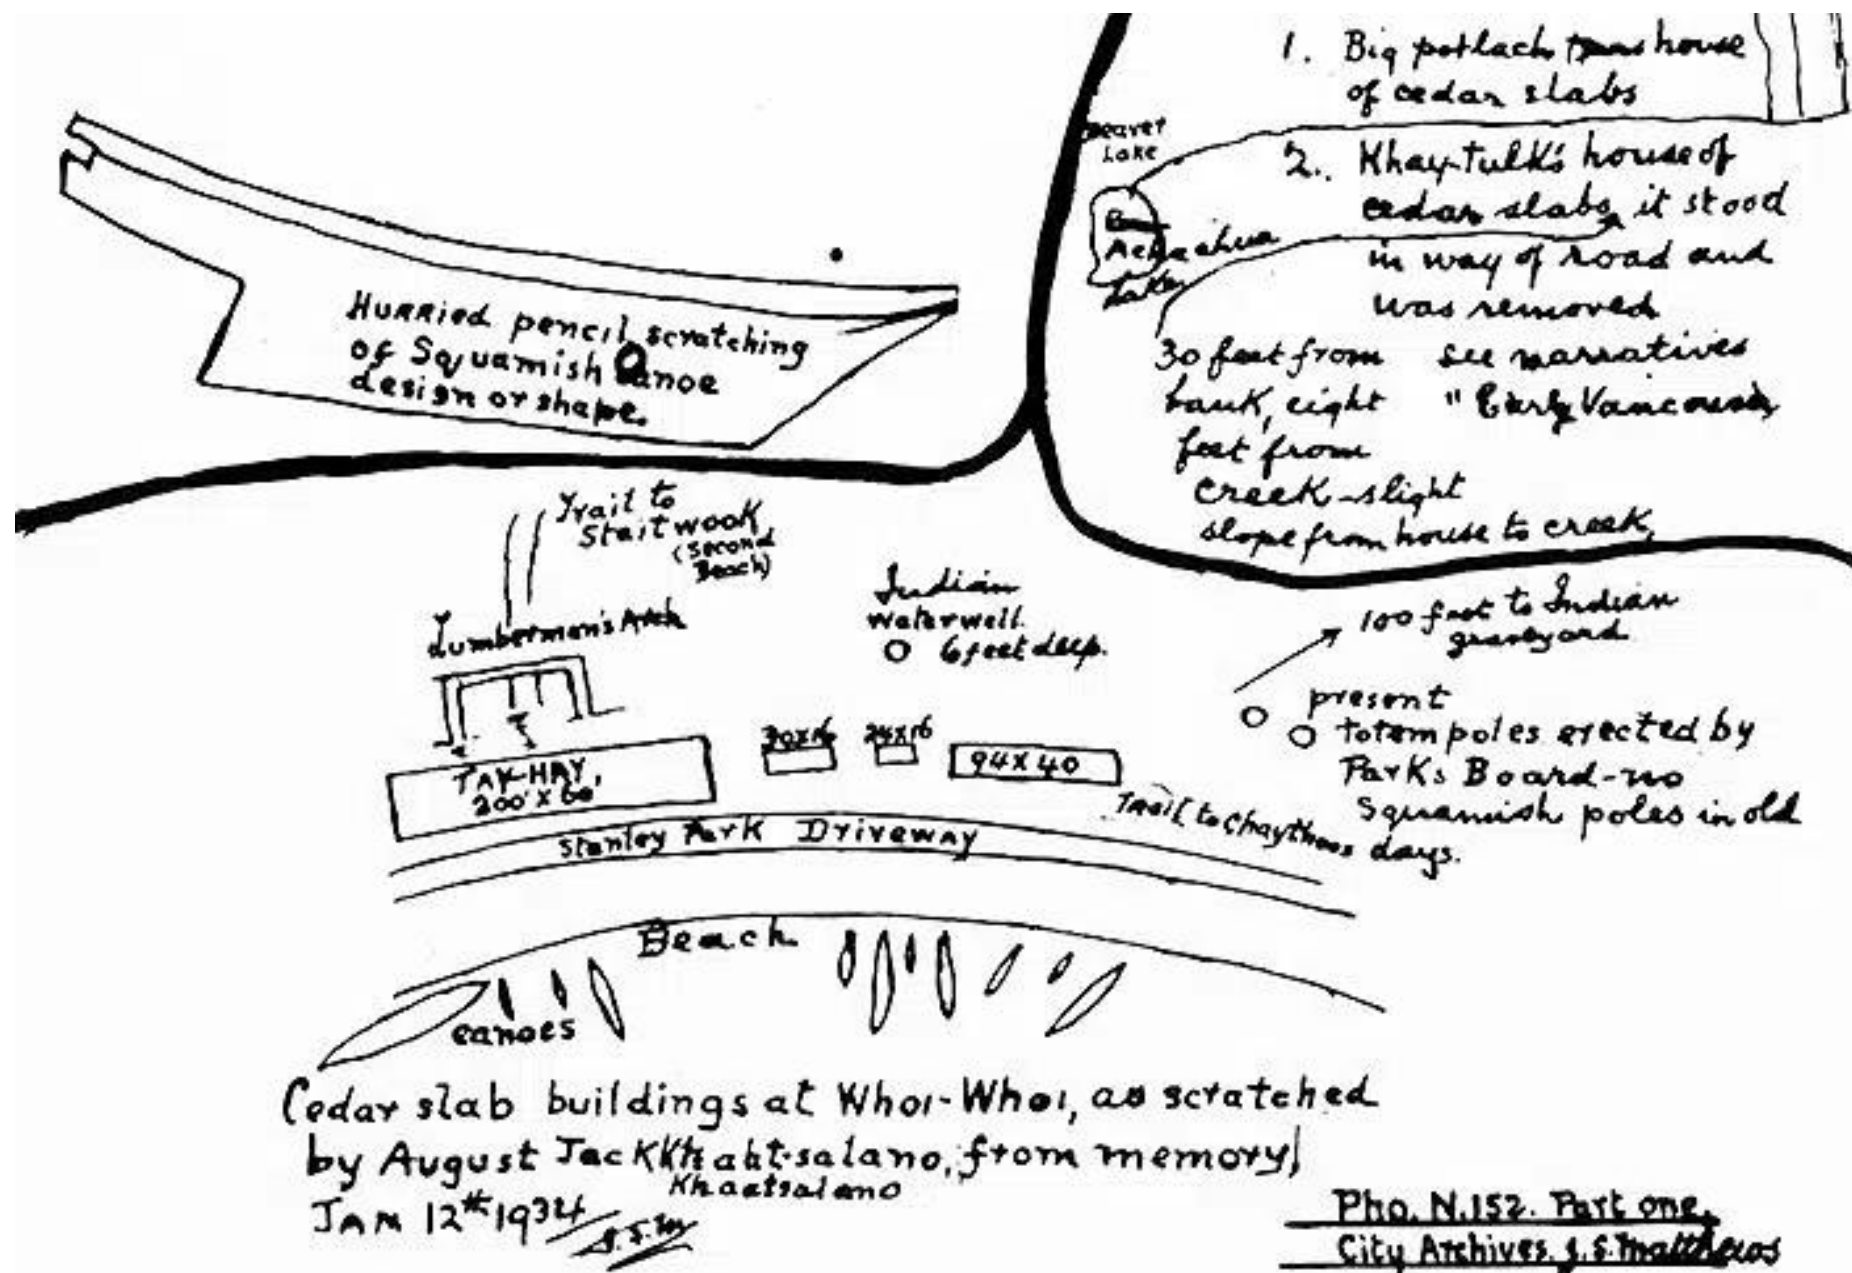 HURRied pencil scratching
of Squamish Canoe
design or shape.
1. Big potlach house
of cedar slabs
Beaver
Lake
2. Khay-tulk's house of
cedar slabs, it stood
in way of road and
was removed
see narratives
"Early Vancouver,
Lake
30 feet from
bank, eight
feet from
creek-slight
slope from house to creek,
Trail to
Staitwook,
(Second
Beach)
Lumbermen's Arch
Indian
waterwell.
6 feet deep.
100 feet to Indian
graveyard
present
totem poles erected by
Parks Board-no
Squamish poles in old
days.
TAY-HAY,
200' X 60'
30X16
24X16
94X40
Trail to Chaythoos
Stanley Park Driveway
Beach
canoes
Cedar slab buildings at Whoi-Whoi, as scratched
by August Jack Khaht-salano, from memory,
Khaatsalano
JAN 12th 1934
J.S.M
Pho. N.152. Part one,
City Archives. J.S. Matthews